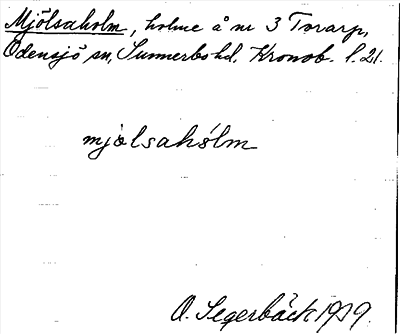 Mjölsaholm, holme å nr 3 Torarp,
Odensjö sn, Sunnerbo hd, Kronob. l. 21.
mjölsahólm
O. Segerbäck 1919.